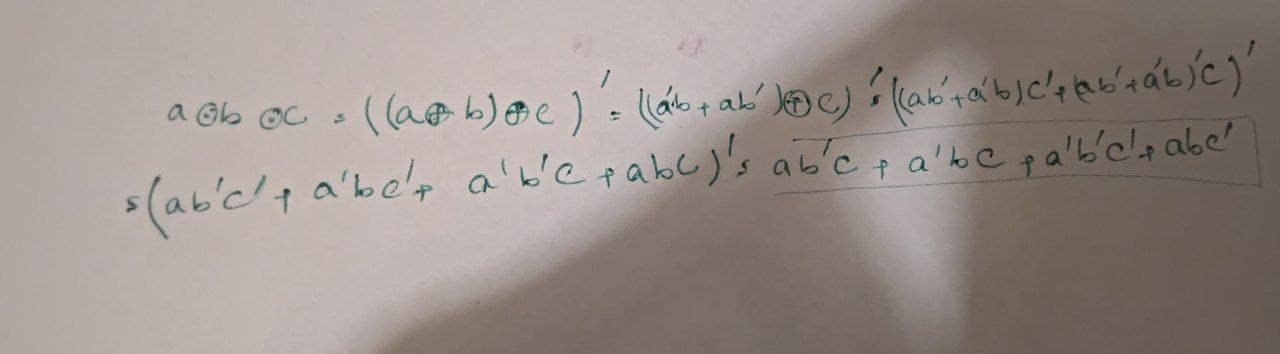 a⊙b⊙c = ((a⊕b)⊕c)' = ((a'b+ab')⊕c)' = ((ab'+a'b)c'+(ab'+a'b)'c)'
=(ab'c'+a'bc'+a'b'c+abc)'= ab'c+a'bc+a'b'c'+abc'